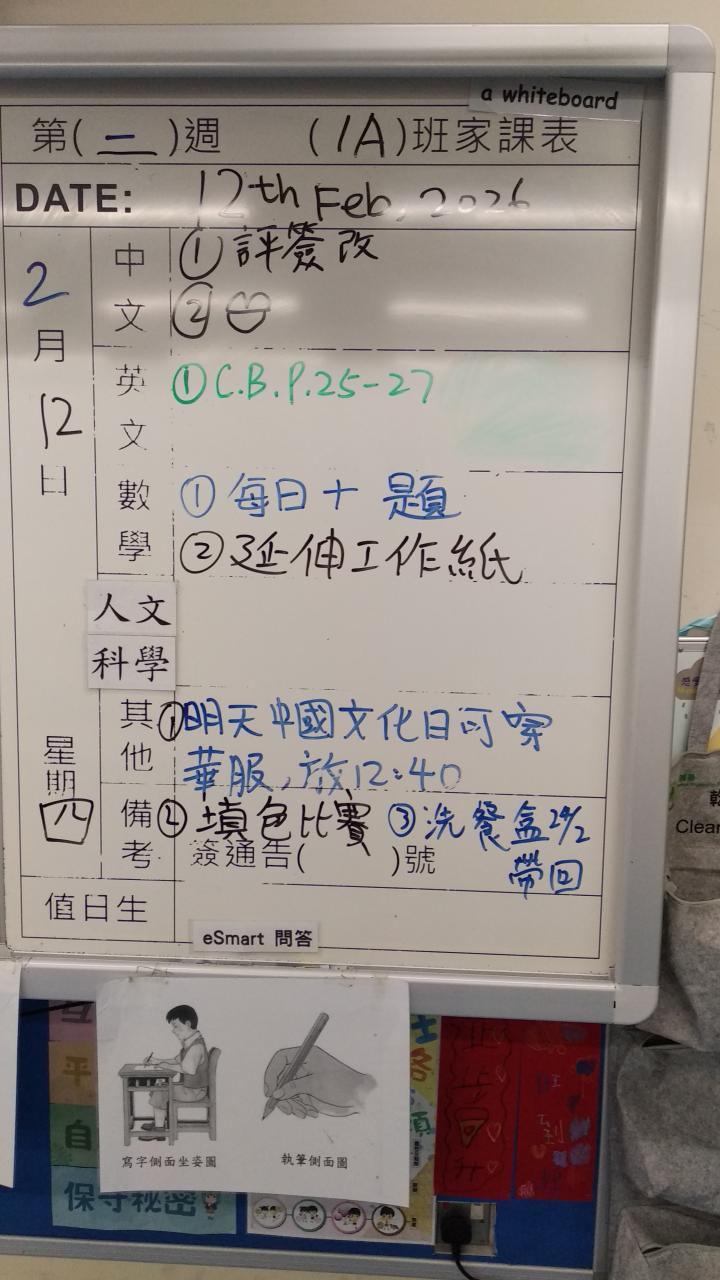 a whiteboard
第(二)週 (1A)班家課表
DATE: 12th Feb, 2026
2月12日
星期四
中文
①評簽改
②
英文
①C.B.P.25-27
數學
①每日十題
②延伸工作紙
人文
科學
其他
①明天中國文化日可穿
華服,放12:40
備考
②填色比賽 ③洗餐盒24/2
帶回
簽通告( )號
值日生
eSmart 問答
寫字側面坐姿圖
執筆側面圖
平
自
保守秘密
Clear